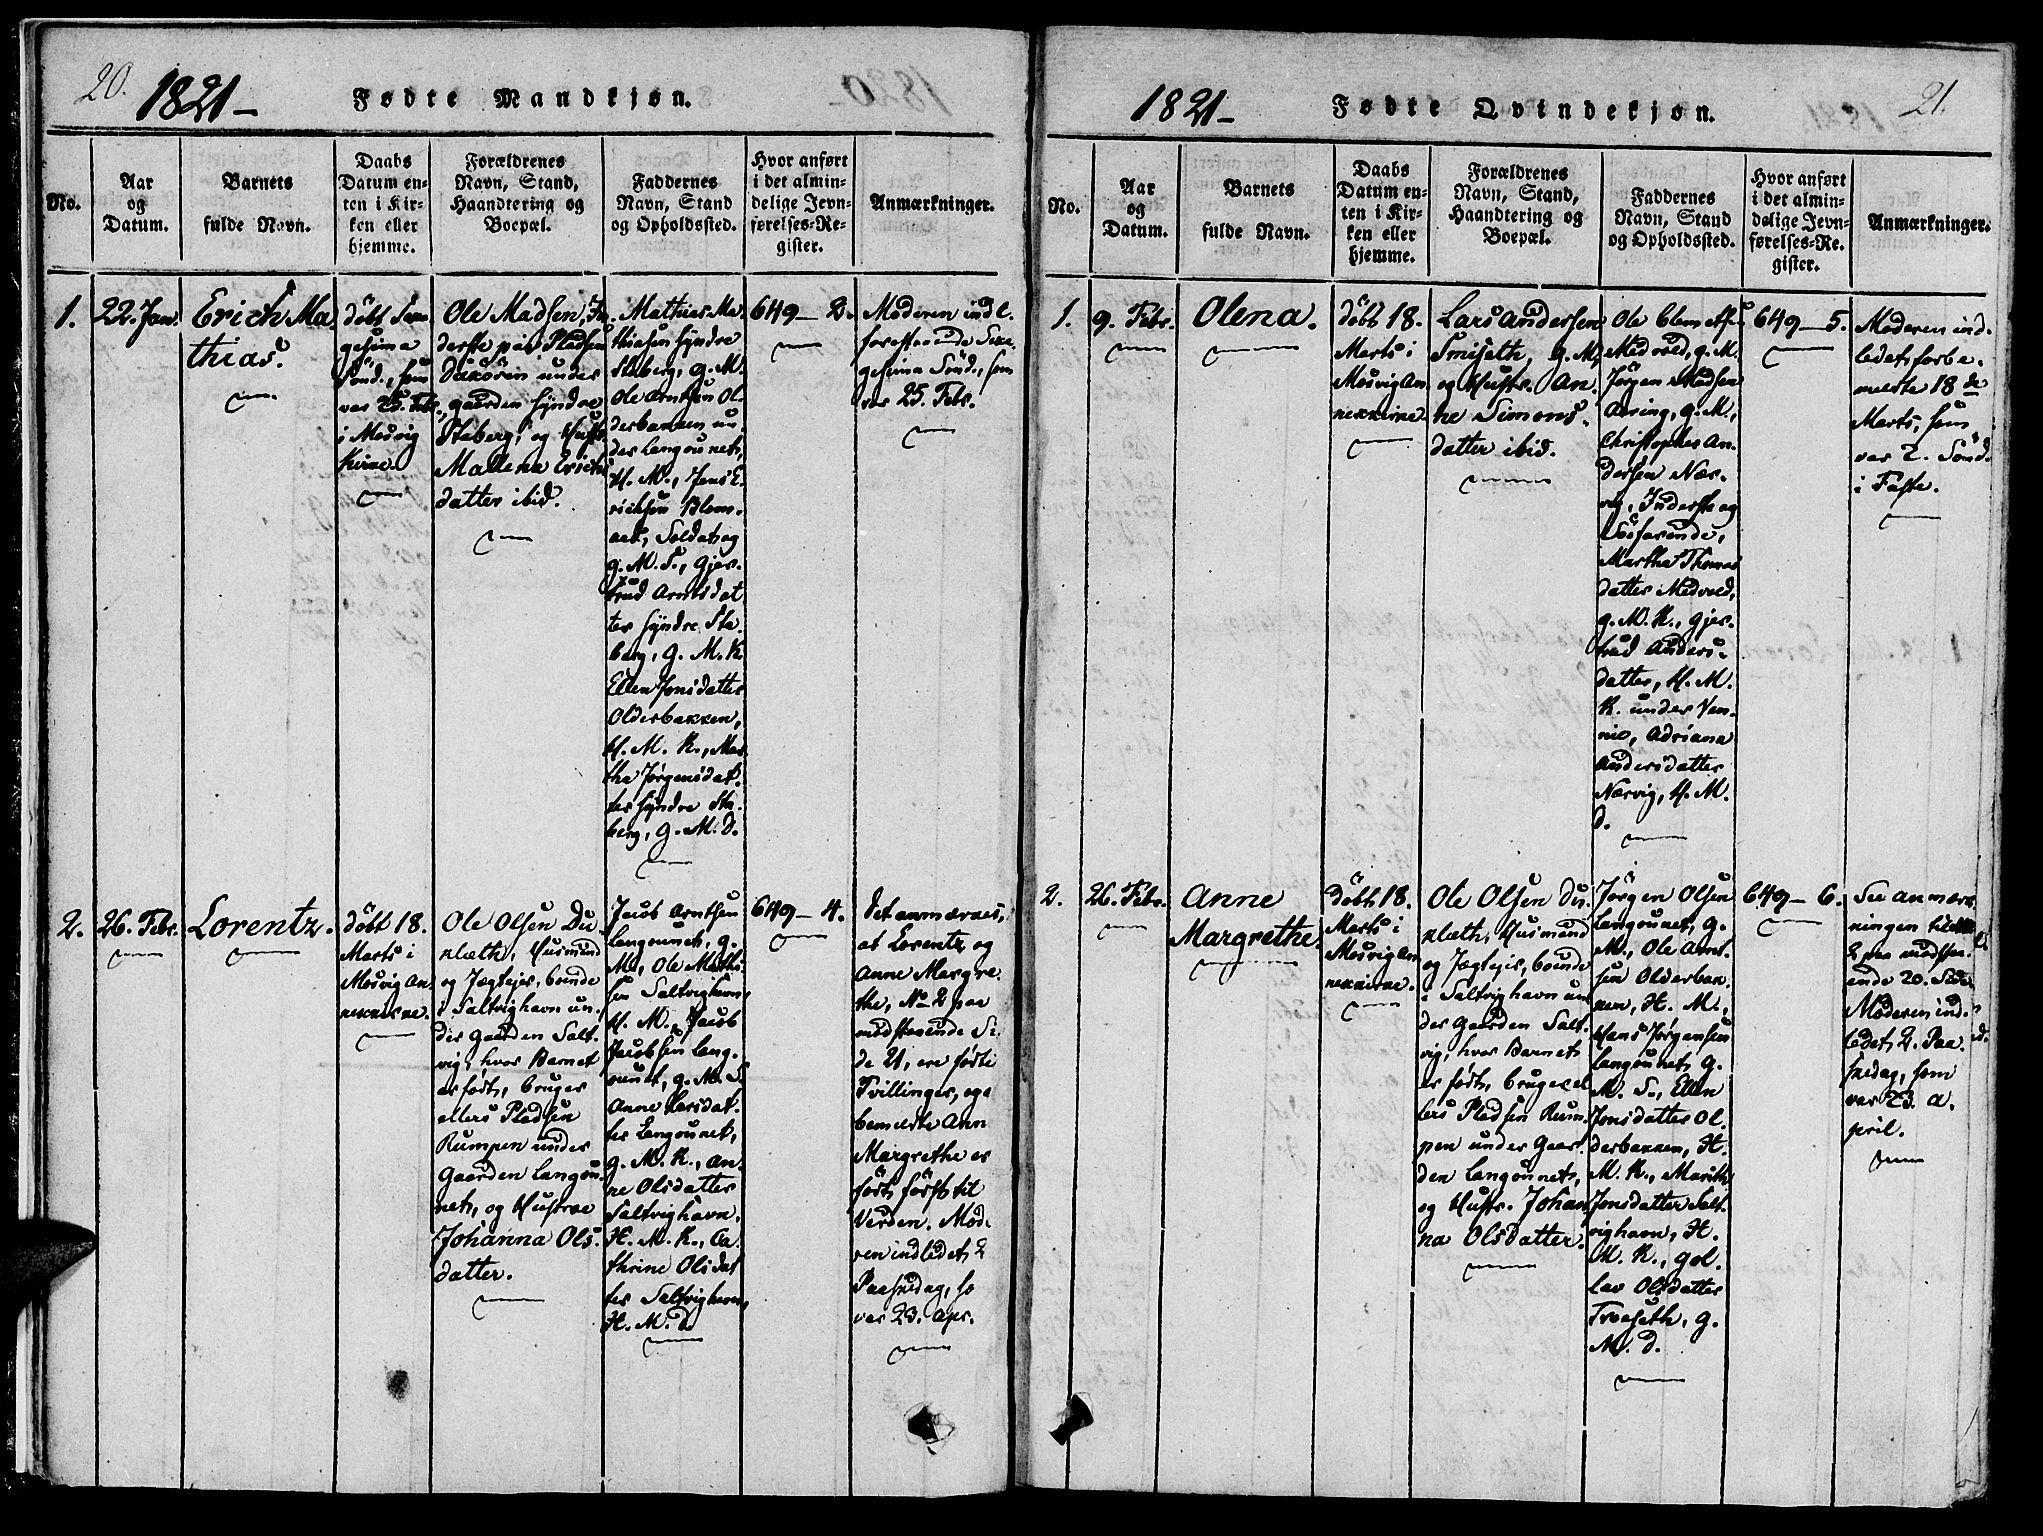 20.
1821-
Fødte Mandkjøn.
No.
Aar
og
Datum.
Barnets
fulde Navn.
Daabs
Datum en-
ten i Kir-
ken eller
hjemme.
Forældrenes
Navn, Stand,
Haandtering og
Boepæl.
Faddernes
Navn, Stand
og Opholdssted.
Hvor anført
i det almin-
delige Jevn-
førelses-Re-
gister.
Anmærkninger.
1.
22. Jan.
Erich Ma
thias.
döbt Sexa
gesima
Sönd., som
var 25. Febr.,
i Mosvig
Kirke.
Ole Madsen, In
derste paa Pladsen
under
gaarden Syndre
Staberg, og Hustr.
Mallena Erichs
datter ibid.
Mathias Ma
thiasen Syndre
Staberg, g. M.
Ole Arntsen Ol
derbakken un
der Langounet,
H. M., Jens E
richsen Blom-
aae, Soldat og
g. M. S., Gjer
trud Arntsdat
ter Syndre Sta
berg, g. M. K.
Ellen Jonsdatter
Olderbakken,
H. M. K., Mar
tha Jørgensdat
ter Syndre Sta
berg, g. M. d.
649 - 2.
Moderen indl.
forestaaende Sexa
gesima Sönd., som
var 25. Febr.
2.
26. Febr.
Lorentz.
döbt 18.
Marts i
Mosvig An
nexkirke.
Ole Olsen Du
klæth, Husmand
og Jægtejer, boende
i Saltvighavn un
der Gaarden Salt
vig, hvor Barnet
er født, bruger
ellers Pladsen
Rumpen under
Gaarden Langou
net, og Hustrue
Johanna Ols-
datter.
Jacob Arntsen
Langounet, g.
M., Ole Mathi
sen Saltvighavn,
H. M., Jacob
Jacobsen Lang-
ounet, g. M. S.
Anne Larsdat
ter Langounet,
g. M. K., An-
ne Olsdatter
Saltvighavn,
H. M. K., Ca
thrine Olsdat
ter Saltvighavn,
H. M. d.
649 - 4.
Det anmærkes,
at Lorentz og
Anne Margre
the, No 2 paa
modstaaende Si
de 21, ere fødte
Tvillinger, og
bemeldte Ann
Margrethe er
født först til
Verden. Mod
ren indledet 2
Paaskedag, so
var 23. Apr.
21.
1821-
Fødte Qvindekjøn.
No.
Aar
og
Datum.
Barnets
fulde Navn.
Daabs
Datum en-
ten i Kir-
ken eller
hjemme.
Forældrenes
Navn, Stand,
Haandtering og
Boepæl.
Faddernes
Navn, Stand
og Opholdssted.
Hvor anført
i det almin-
delige Jevn-
førelses-Re-
gister.
Anmærkninger.
1.
9. Febr.
Olena.
döbt 18.
Marts i
Mosvig An
nexkirke.
Lars Andersen
Smiseth, g. M.
og Hustr. An
ne Simons-
datter ibid.
Ole Clemetsen
Medvold, g. M.
Jörgen Madsen
Aaring, g. M.,
Christopher An
dersen Næs-
vig, Inderste og
Søefarende,
Martha Thomas
datter Medvold,
g. M. K., Gjer
trud Anders-
datter, H. M.
K. under Ven-
nie, Adriana
Andersdatter
Næsvig, H. M.
d.
649 - 5.
Moderen ind-
ledet forbe-
meldte 18 de
Marts, som
var 2. Sönd.
i Faste.
2.
26. Febr.
Anne
Margrethe.
döbt 18.
Marts i
Mosvig An
nexkirke.
Ole Olsen Du
klæth, Husmand
og Jægtejer, boende
i Saltvighavn un
der Gaarden Salt
vig, hvor Barnet
er født, bruger el
lers Pladsen Rum
pen under Gaar
den Langounet,
og Hustr. Johan
na Olsdatter.
Jörgen Olsen
Langounet, g.
M., Ole Arnt
sen Olderbak
ken, H. M.,
Hans Jørgensen
Langounet, g.
M. S., Ellen
Jonsdatter Ol
derbakken, H.
M. K., Marith
Jonsdatter Salt
vighavn, H.
M. K., Gol
lav Olsdatter
Troeseth, g.
M. d.
649 - 6.
See anmærk
ningen til
2 paa modstaa
ende 20. Side.
Moderen ind-
ledet 2. Paa
skedag, som
var 23. A.
pril.